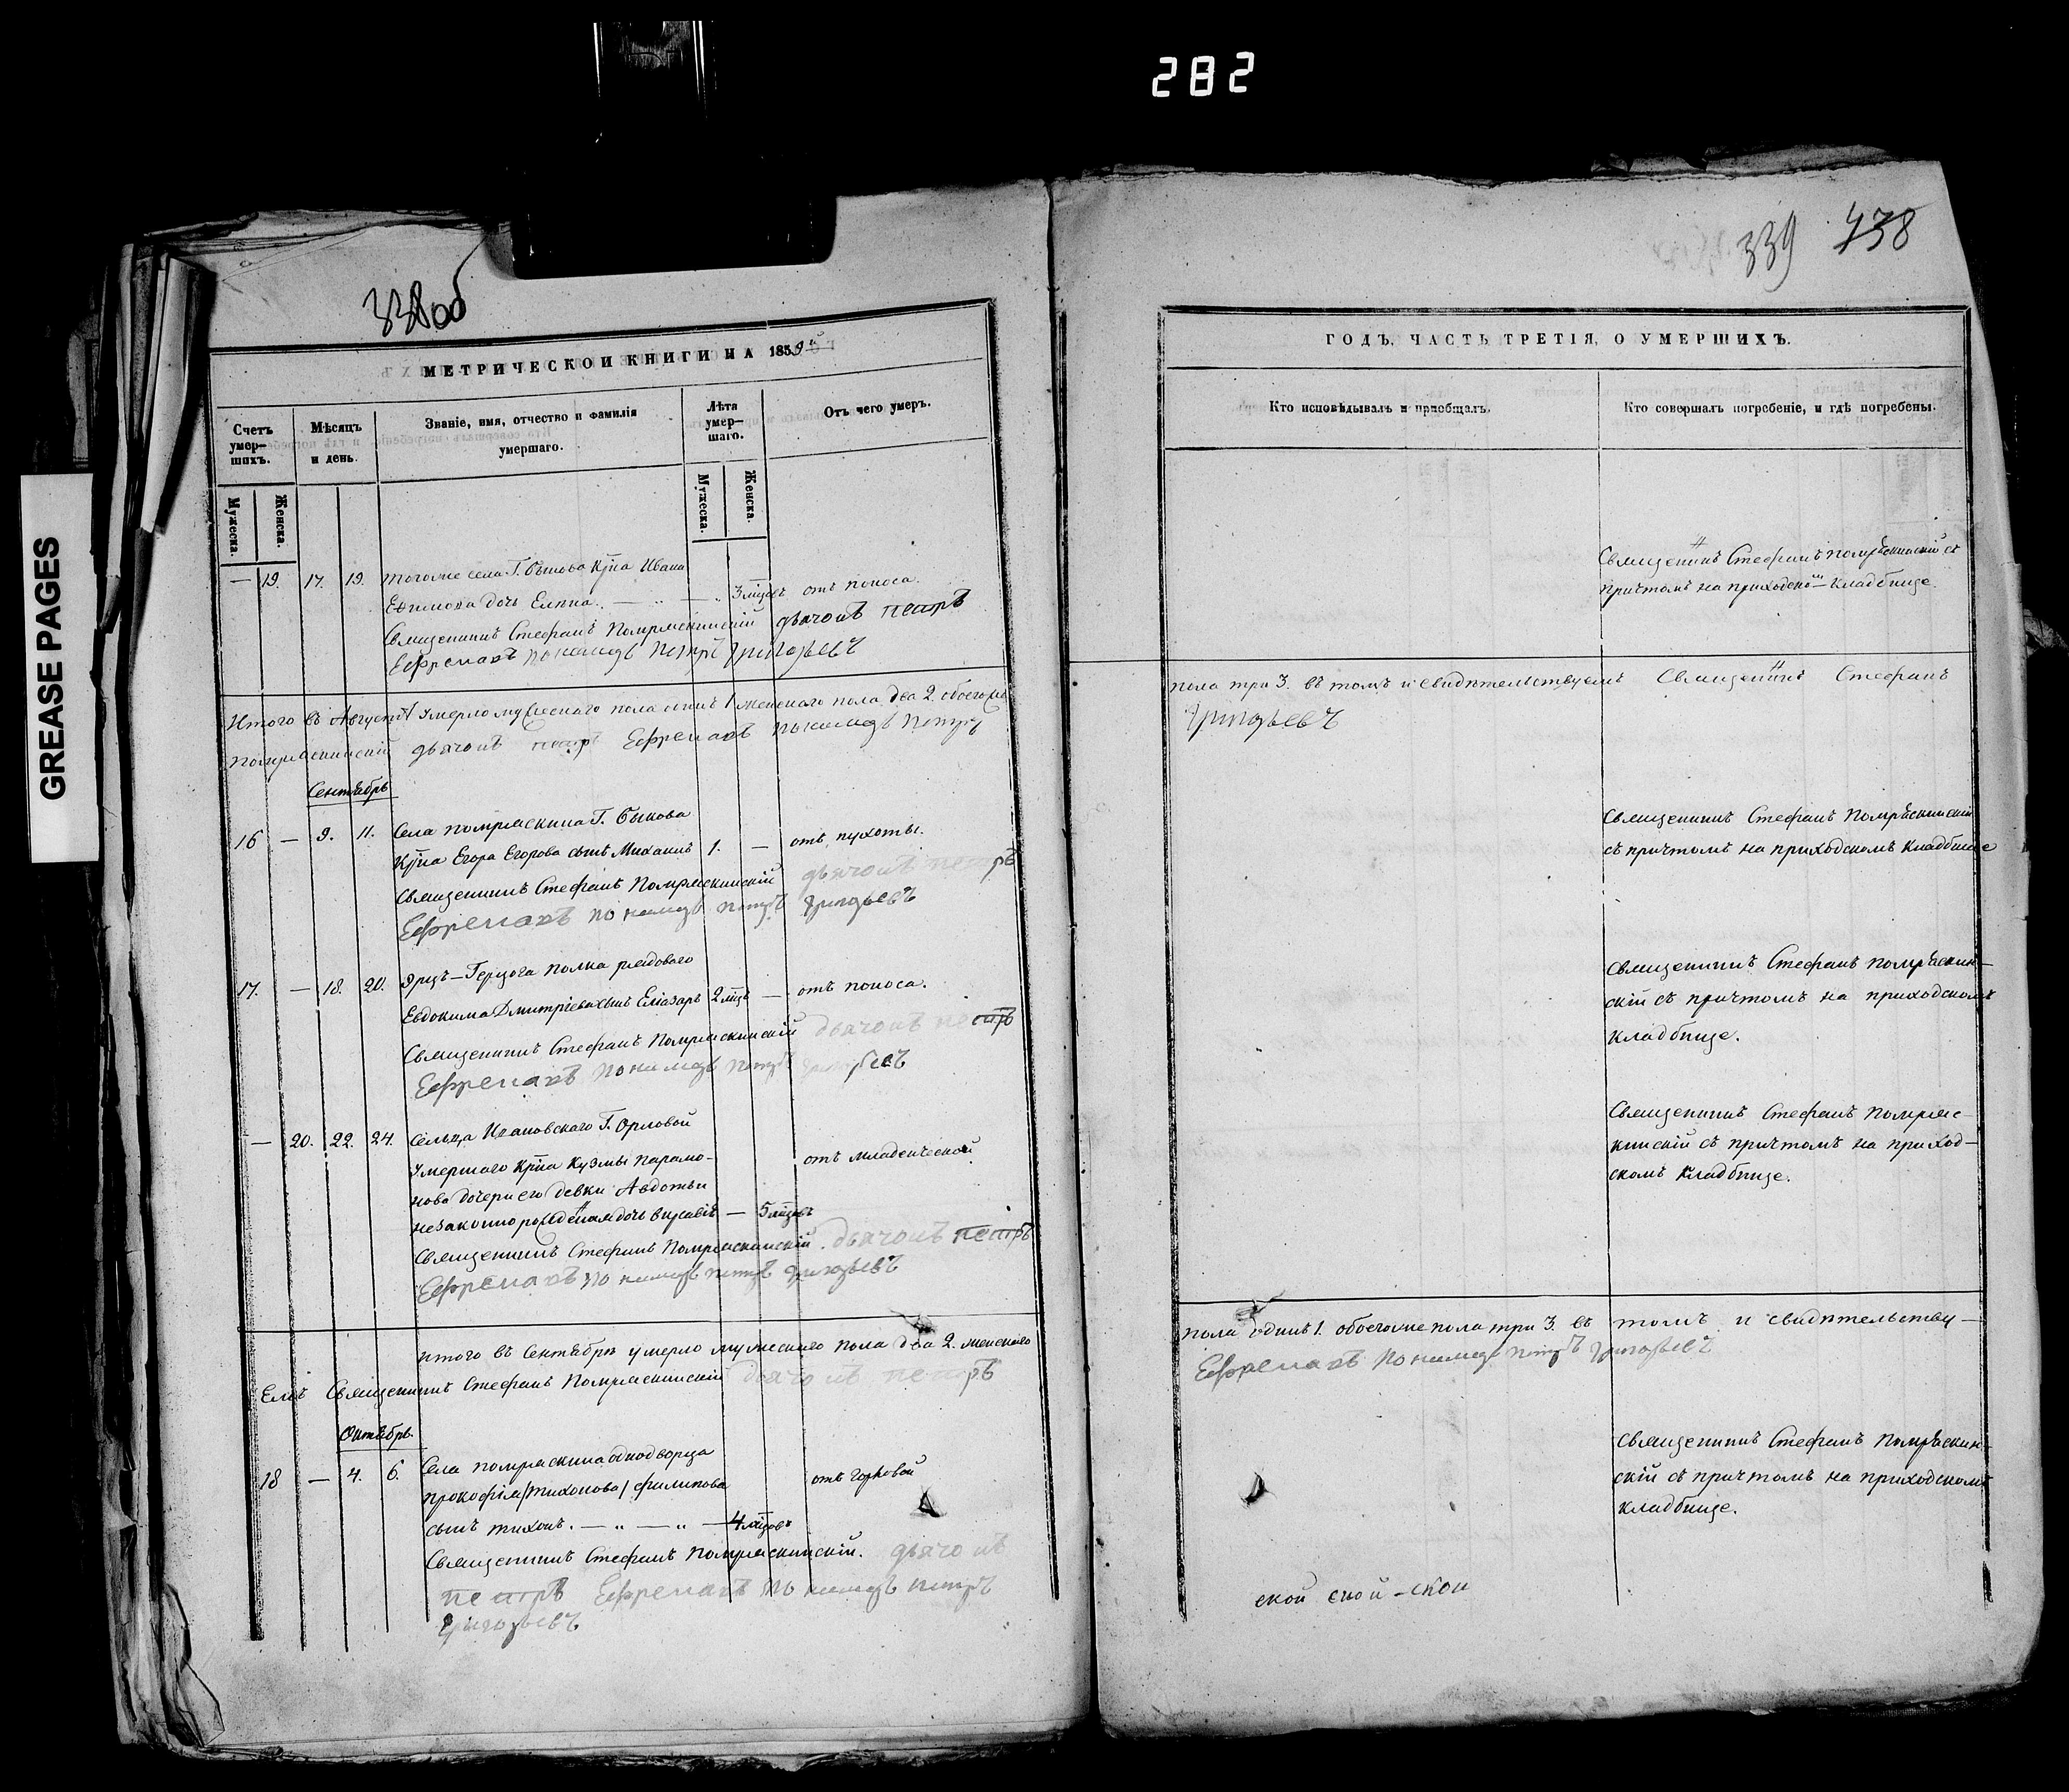 282
GREASE PAGES
338об
МЕТРИЧЕСКОЙ КНИГИ НА 1859й
Счетъ умер-шихъ.
Мѣсяцъ и день.
Званіе, имя, отчество и фамилія умершаго.
Лѣта умер-шаго.
Отъ чего умеръ.
Мужеска. Женска.
Мужеска. Женска.
— 19. 17. 19. тогоже села Г. Быкова Крна Ивана
Ефимова дочь Елена. — „ — „ 3 мцовъ отъ поноса.
Священникъ Стефанъ Помряскинскій дьячокъ петръ
Ефремовъ пономарь Петръ Григорьевъ
Итого въ Августѣ умерло мужескаго пола одинъ 1 женскаго пола два 2 обоегоже
Помряскинскій дьячокъ петръ Ефремовъ пономарь Петръ
Сентябрь
16 — 9. 11. Села помряскина Г. Быкова
Крна Егора Егорова сынъ Михаилъ 1. — отъ сухоты.
Священникъ Стефанъ Помряскинскій дьячокъ петръ
Ефремовъ пономарь петръ Григорьевъ
17. — 18. 20. Эрцъ-Герцога полка рядоваго
Евдокима Дмитріева сынъ Еліазаръ 2 мцъ — отъ поноса.
Священникъ Стефанъ Помряскинскій дьячокъ петръ
Ефремовъ пономарь петръ Григорьевъ
— 20. 22. 24. Сельца Г. Орловой
умершаго Крна Кузмы Парамо-
нова дочери его девки Авдотьи отъ младенческой
незаконнорожденная дочь — 5 мцовъ
Священникъ Стефанъ Помряскинскій. дьячокъ петръ
Ефремовъ пономарь петръ Григорьевъ
итого въ Сентябрѣ умерло мужескаго пола два 2. женскаго
емъ Священникъ Стефанъ Помряскинскій дьячокъ петръ
Октябрь.
18 — 4. 6. Села помряскина однодворца
прокофія /тихонова/ филипова отъ горковой
сынъ тихонъ. — „ — „ — 4 мцовъ
Священникъ Стефанъ Помряскинскій. дьячокъ
петръ Ефремовъ пономарь петръ
Григорьевъ
339 438
ГОДЪ, ЧАСТЬ ТРЕТІЯ, О УМЕРШИХЪ.
Кто исповѣдывалъ и пріобщалъ.
Кто совершалъ погребеніе, и гдѣ погребены.
Священникъ Стефанъ помряскинскій съ
причтомъ на приходском кладбище.
пола три 3. въ томъ и свидѣтельствуемъ Священникъ Стефанъ
Григорьевъ
Священникъ Стефанъ Помряскинскій
съ причтомъ на приходскомъ кладбище
Священникъ Стефанъ помряскин-
скій съ причтомъ на приходскомъ
кладбище.
Священникъ Стефанъ Помряс-
кинскій съ причтомъ на приход-
скомъ кладбище.
пола одинъ 1. обоегоже пола три 3. въ томъ и свидѣтельству-
Ефремовъ пономарь петръ Григорьевъ
Священникъ Стефанъ Помряскин-
скій съ причтомъ на приходскомъ
кладбище.
ской ской - ской